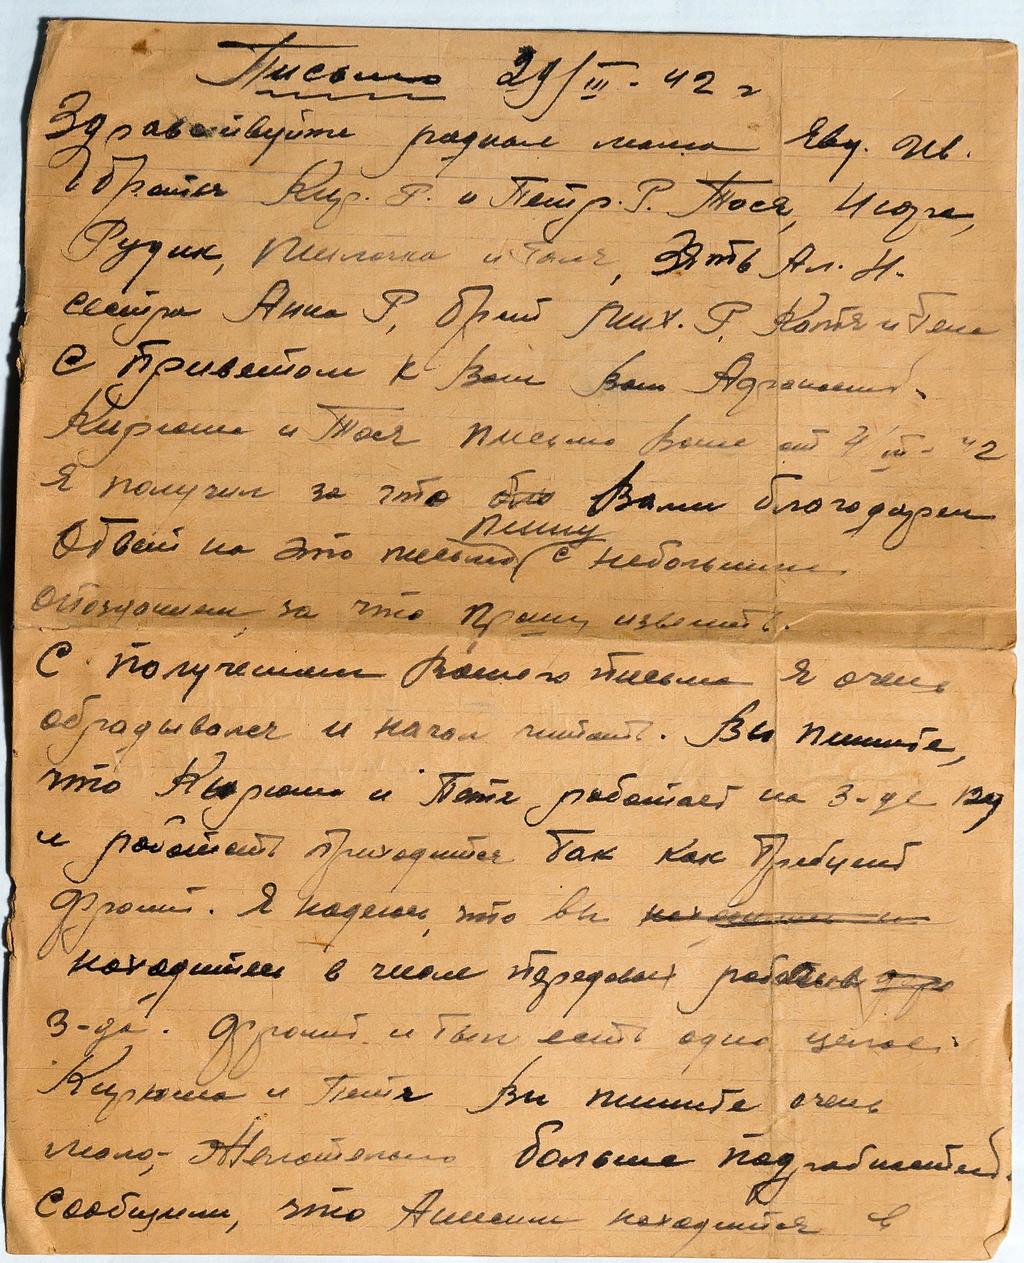 Письмо 29/III-42 г
Здравствуйте родная мама Евд. Ив.
Братья Кир. Р. и Петр. Р. Тося, Игоря,
Рудик, Милочка и Толя, Зять Ал. Н.
сестра Анна Р, брат Мих. Р, Катя и Гена
С приветом к Вам Ваш
Кирюша и Тося письмо Ваше от 4/III-42
Я получил за что Вами благодарен
пишу
Ответ на это письмо с небольшим
опозданием, за что прошу извенить.
С получением Вашего письма я очень
обрадывался и начал читать. Вы пишите,
что Кирюша и Петя работает на з-де
и работать приходится так как требует
фронт. Я надеюсь, что вы находитись и
находитесь в числе передовых
з-да. Фронт и тыл есть одно целое.
Кирюша и Петя Вы пишите очень
мало, Желательно больше подробностей.
Сообщили, что Анисим находится в